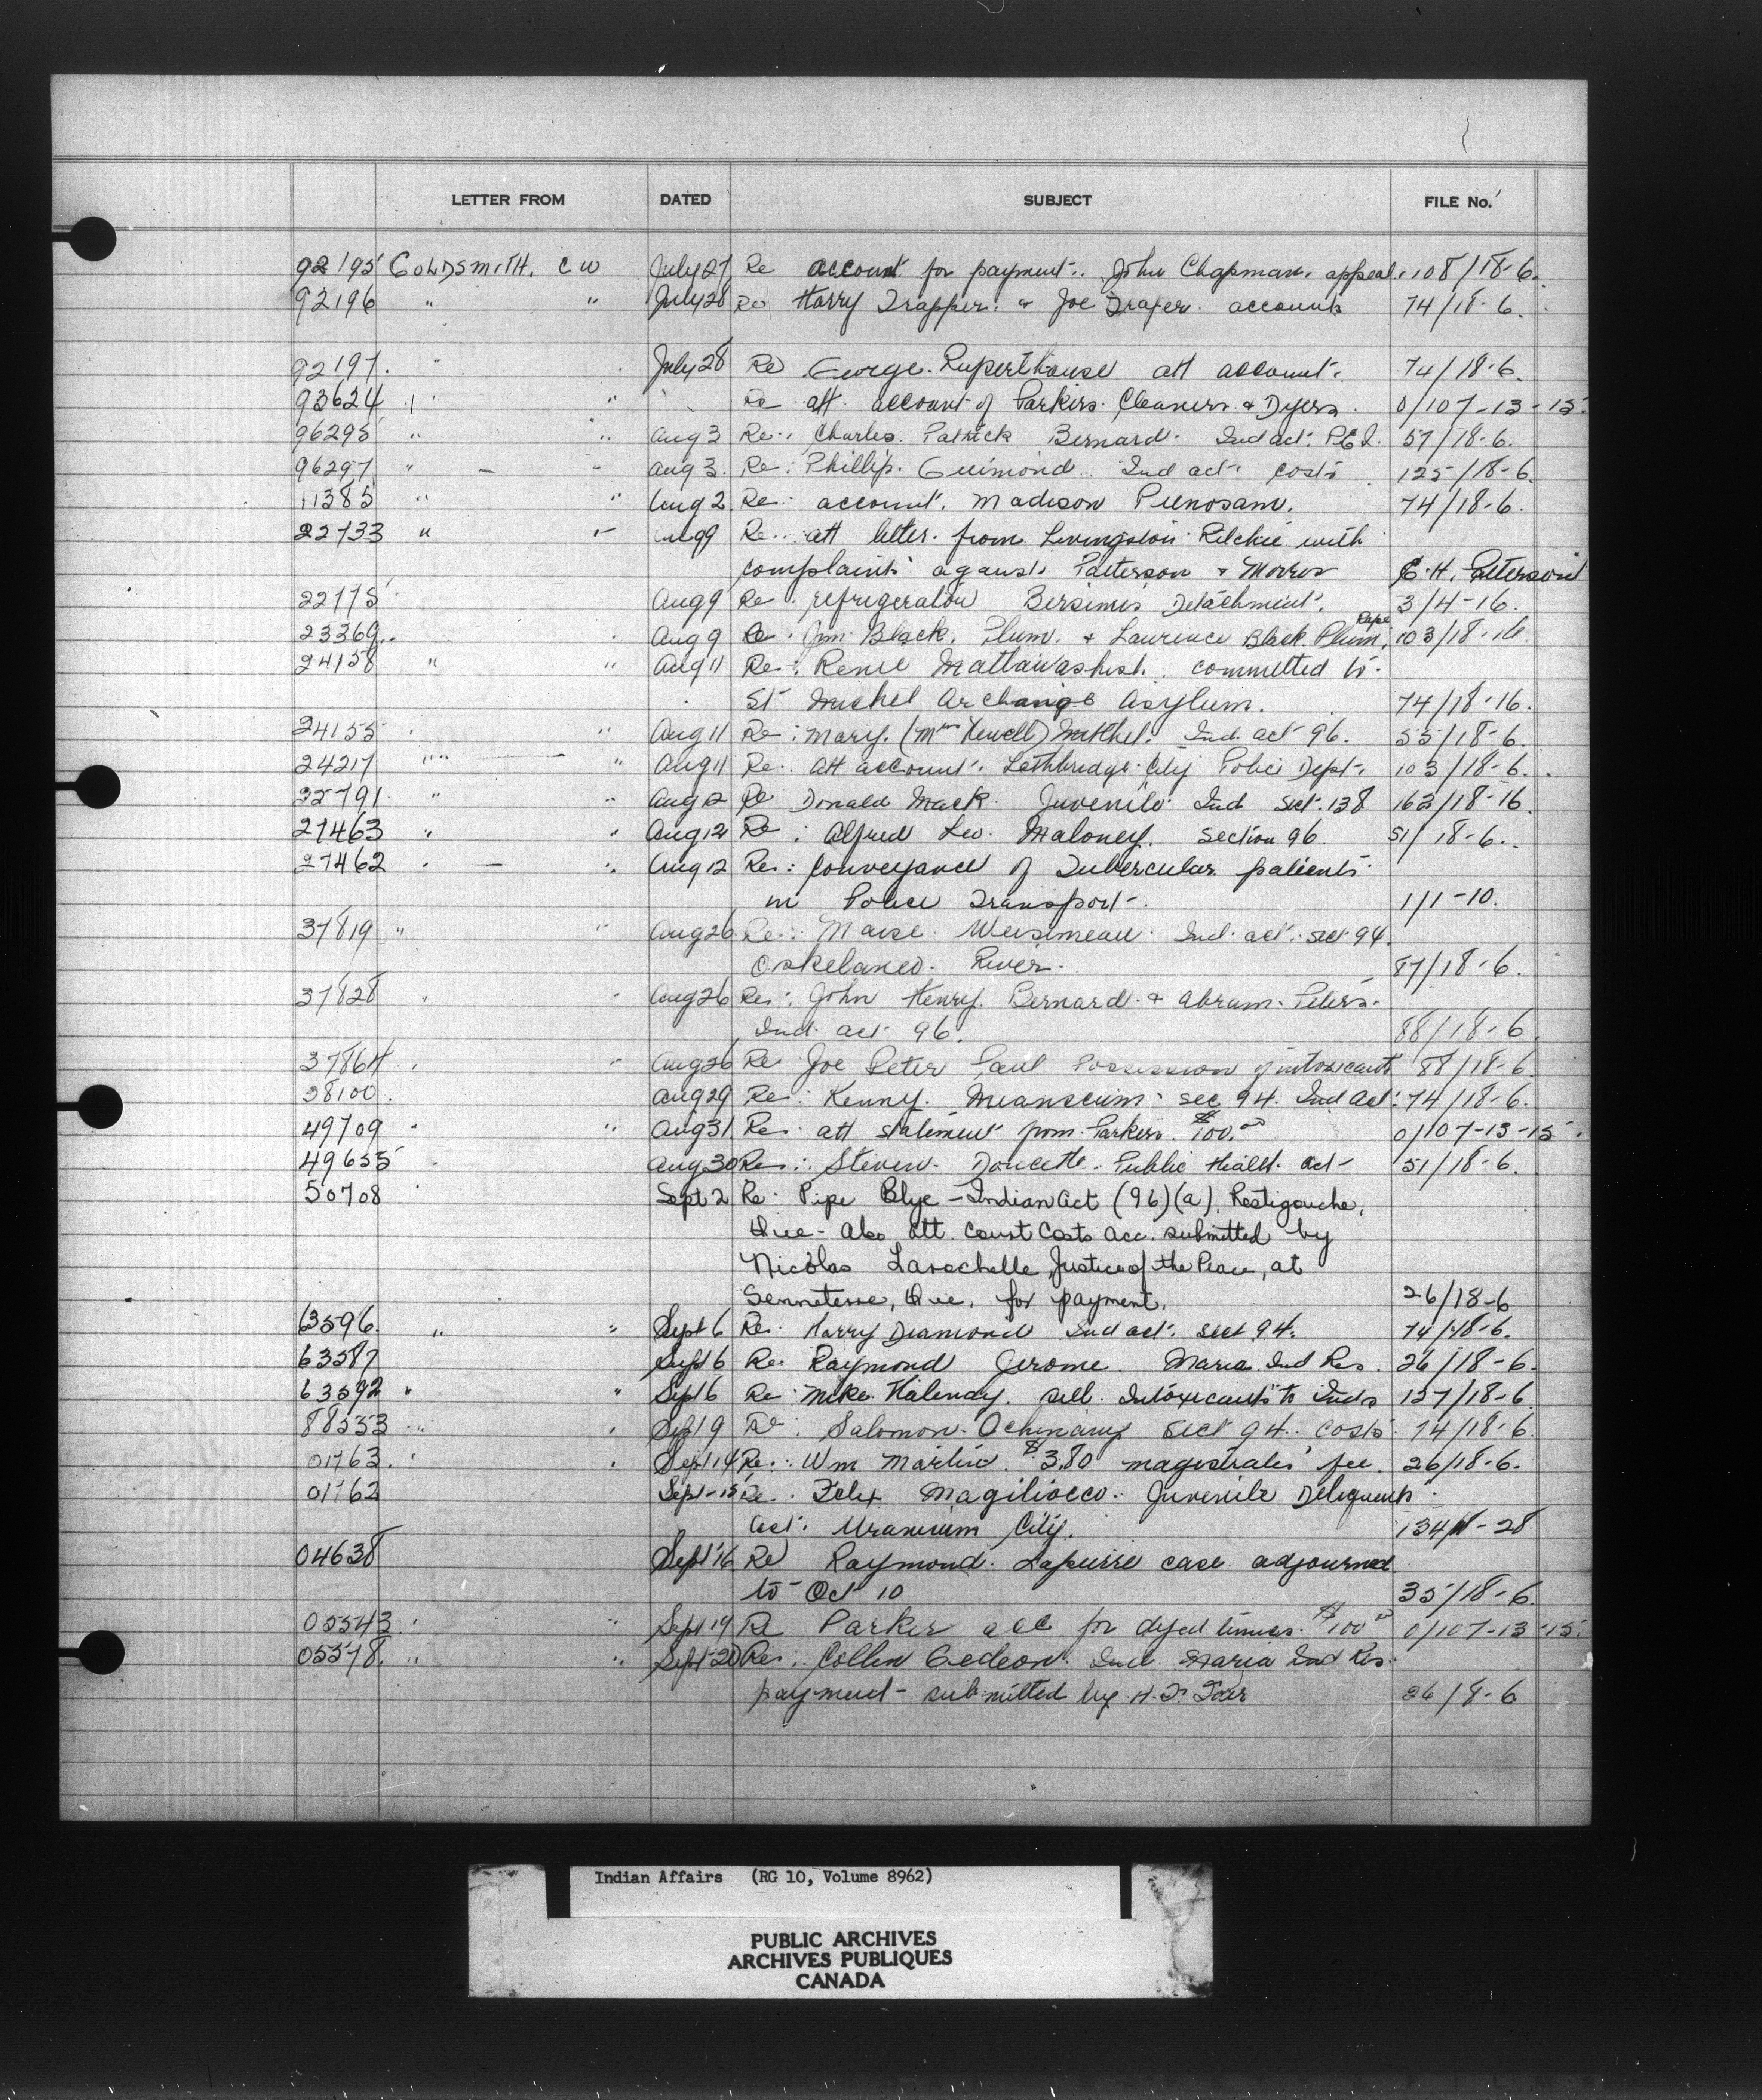 LETTER FROM DATED SUBJECT FILE No.
92195 GOLDSMITH, C W July 27 Re account for payment. John Chapman. appeal. 108/18-6.
92196 " " July 28 Re Harry Trapper. & Joe Draper. accounts 74/18-6.
92197. " July 28 Re George Ruperthouse att account. 74/18-6.
93624 " " Re att. account of Parkers Cleaners & Dyers. 0/107-13-15.
96295 " " Aug 3 Re: Charles Patrick Bernard. Ind act. P.E.I. 57/18-6.
96297 " - " Aug 3. Re: Phillip. Guimond. Ind act. costs. 125/18-6.
11385 " " Aug 2. Re: account. Madison 74/18-6.
22733 " " Aug 9 Re: att letter from Livingston Ritchie with
complaints against Patterson & Morris C.H. Patterson
22775 Aug 9 Re refrigerator Bersimis Detachment. 3/4-16.
23369 Aug 9 Re. Jim Black. Plum. & Laurence Black Plum, Rape 103/18-16.
24158 " " Aug 11 Re: Rene Mattawashish. committed to
St Michel Archange Asylum. 74/18-16.
24155 " Aug 11 Re: Mary. (Mrs Newell) Mitchel. Ind. act 96. 55/18-6.
24217 " " Aug 11 Re. att account. Lethbridge City Police Dept. 103/18-6.
22791 " " Aug 12 Re Donald Mack. Juvenile Ind sect. 138 162/18-16.
27463 " " Aug 12 Re: Alfred Leo. Maloney. Section 96 51/18-6.
27462 " - " Aug 12 Re: Conveyance of Tubercular patients
in Police Transport. 1/1-10.
37819 " " Aug 26 Re: Marse Ind. act. sect 94.
Oskelaneo. River. 87/18-6.
37828 " " Aug 26 Re: John Henry. Bernard. & Abram. Peters.
Ind. act 96. 88/18-6
37864 " Aug 26 Re Joe Peter Paul Possession of intoxicants 88/18-6.
38100. Aug 29 Re: Kenny. sec 94. Ind Act. 74/18-6.
49709 " " Aug 31. Re att statement from Parkers. $100.00 0/107-13-15.
49655 Aug 30 Re: Steven. Doucette. Public Health. Act 51/18-6.
50708 " Sept 2 Re: Pipe Blye - Indian Act (96)(a), Restigouche,
Que - Also att. Court Costs acc. submitted by
Nicolas Larochelle, Justice of the Peace, at
Senneterre, Que, for payment. 26/18-6
63596. " " Sept 6 Re. Harry Diamond Ind act. sect 94. 74/18-6.
63587 Sept 6 Re. Raymond Jerome. Maria Ind Res. 26/18-6.
63592 " " Sept 6 Re. Mike Halenay. sell. Intoxicants to Inds 157/18-6.
88553 " " Sept 9 Re: Salomon. sect 94. costs. 74/18-6.
01763. " " Sept 14 Re: Wm Martin. $3.80 magistrates' fee. 26/18-6.
01762 Sept-15 Re. Felix Magiliocco. Juvenile Deliquents
act. Uranium City. 134/1-28
04638 Sept 16 Re Raymond. Lapierre case adjourned
to Oct 10 35/18-6.
05543 " " Sept 19 Re Parker acc for dyed tunics. $100.00 0/107-13-15.
05578. " " Sept 20 Re: Collin Gedeon. Ind. Maria Ind Res.
payment - submitted by H. T. 26/8-6
Indian Affairs (RG 10, Volume 8962)
PUBLIC ARCHIVES
ARCHIVES PUBLIQUES
CANADA